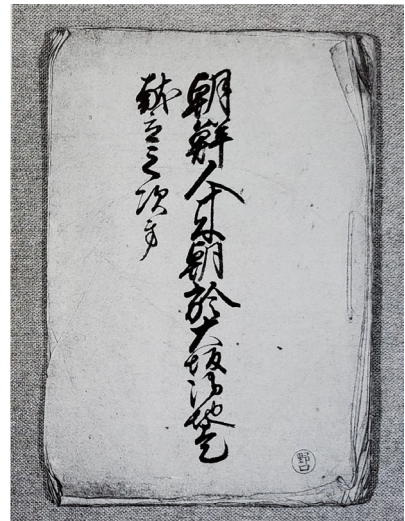 朝鮮人来朝於大坂御馳走
献立之次第
野口